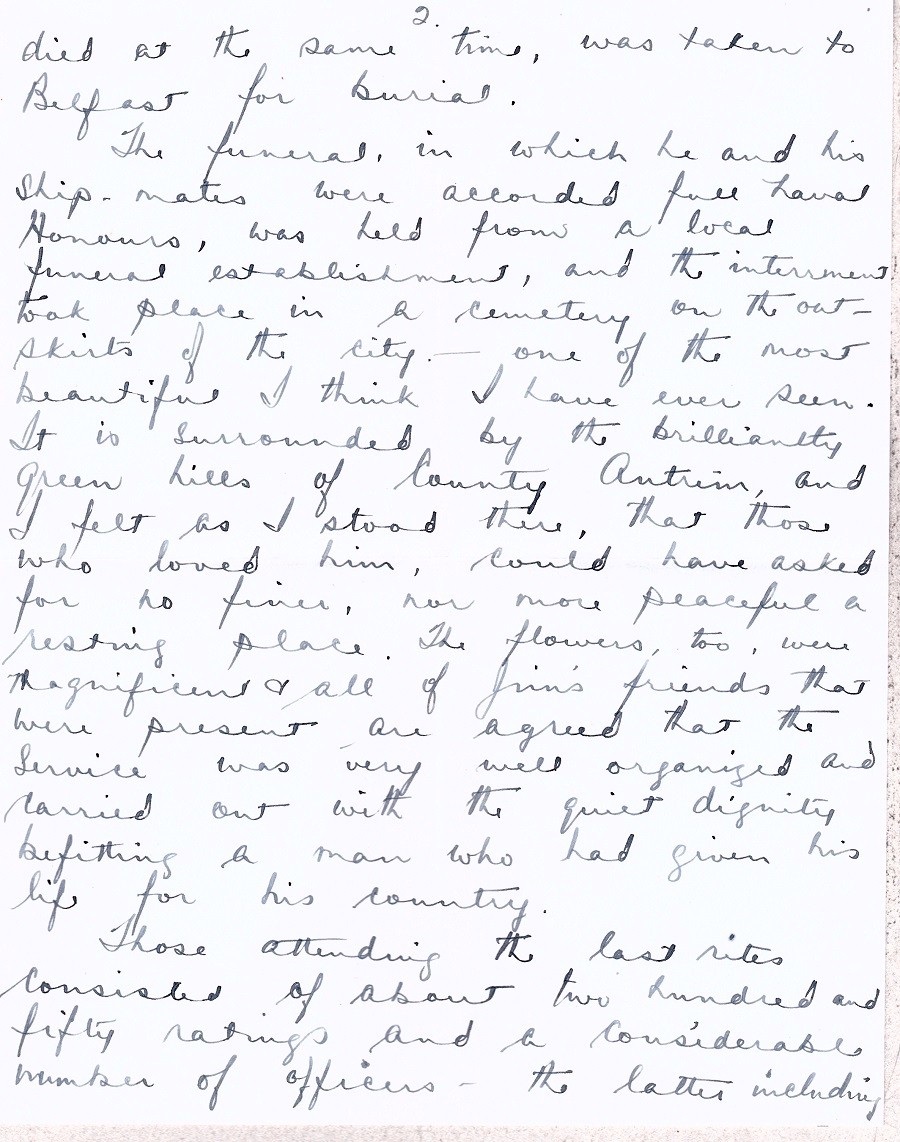 2.
died at the same time, was taken to
Belfast for burial.
The funeral, in which he and his
Ship-mates were accorded full Naval
Honours, was held from a local
funeral establishment, and the interrment
took place in a cemetery on the out-
skirts of the city — one of the most
beautiful I think I have ever seen.
It is surrounded by the brilliantly
green hills of County Antrim, and
I felt as I stood there, that those
who loved him, could have asked
for no finer, nor more peaceful a
resting place. The flowers, too, were
magnificent & all of Jim's friends that
were present are agreed that the
Service was very well organized and
carried out with the quiet dignity
befitting a man who had given his
life for his country.
Those attending the last rites
consisted of about two hundred and
fifty ratings and a considerable
number of officers - the latter including